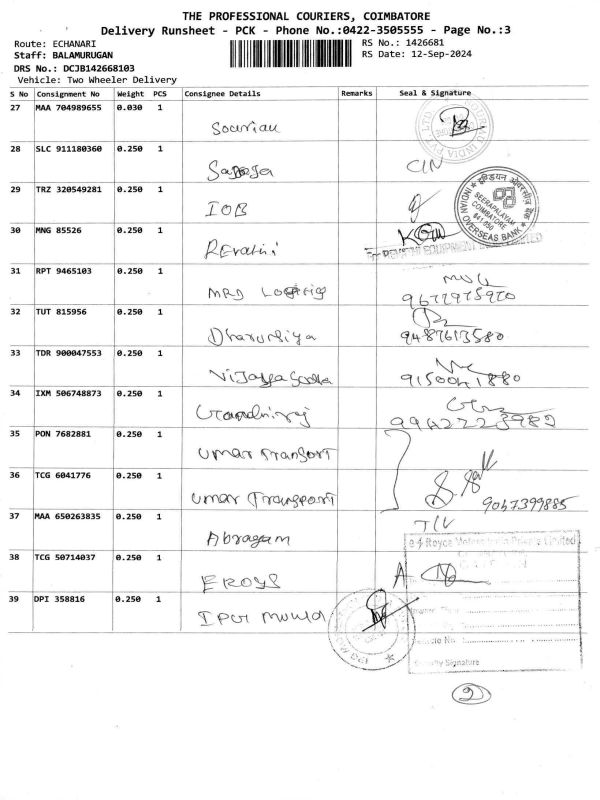 THE PROFESSIONAL COURIERS, COIMBATORE
Delivery Runsheet - PCK - Phone No.:0422-3505555 - Page No.:3
Route: ECHANARI
RS No.: 1426681
Staff: BALAMURUGAN
RS Date: 12-Sep-2024
DRS No.: DCJB142668103
Vehicle: Two Wheeler Delivery
S No Consignment No Weight PCS Consignee Details Remarks Seal & Signature
27 MAA 704989655 0.030 1
Sourian
28 SLC 911180360 0.250 1
CIN
29 TRZ 320549281 0.250 1
IOB
इण्डियन ओवरसीज़ बैंक
SEERAPALAYAM
COIMBATORE
641 050
INDIAN OVERSEAS BANK
30 MNG 85526 0.250 1
Revathi
For REVATHI EQUIPMENT INDIA LIMITED
31 RPT 9465103 0.250 1
MRD
32 TUT 815956 0.250 1
Dharuniya
9487613580
33 TDR 900047553 0.250 1
9150041880
34 IXM 506748873 0.250 1
9942223982
35 PON 7682881 0.250 1
Umar Transport
36 TCG 6041776 0.250 1
Umar Transport
9047399885
37 MAA 650263835 0.250 1
Abragam
38 TCG 50714037 0.250 1
EROYS
39 DPI 358816 0.250 1
Security Signature
2